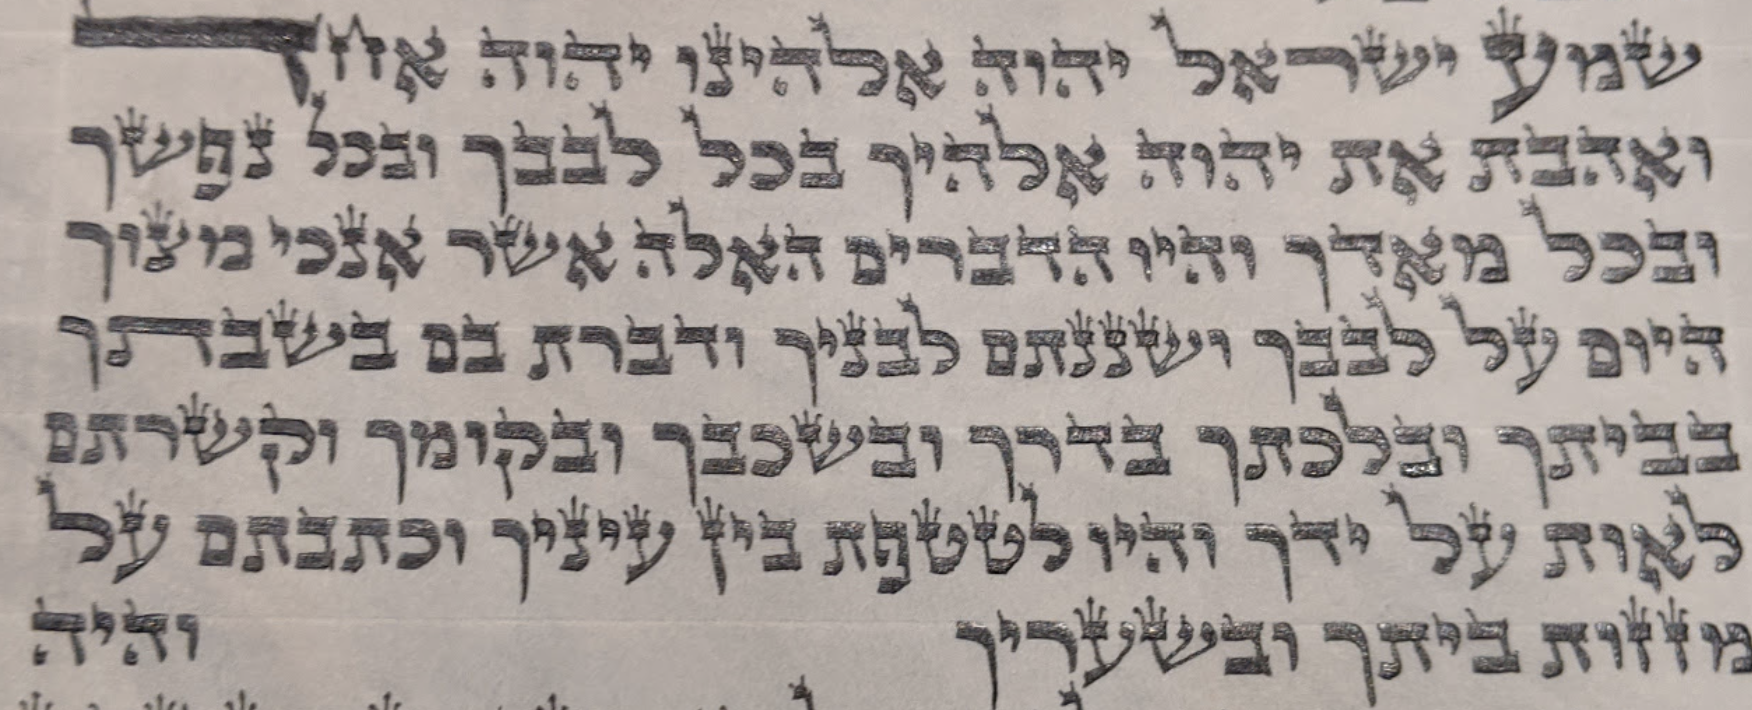 שמע ישראל יהוה אלהינו יהוה אחד
ואהבת את יהוה אלהיך בכל לבבך ובכל נפשך
ובכל מאדך והיו הדברים האלה אשר אנכי מצוך
היום על לבבך ושננתם לבניך ודברת בם בשבתך
בביתך ובלכתך בדרך ובשכבך ובקומך וקשרתם
לאות על ידך והיו לטטפת בין עיניך וכתבתם על
מזזות ביתך ובשעריך והיה